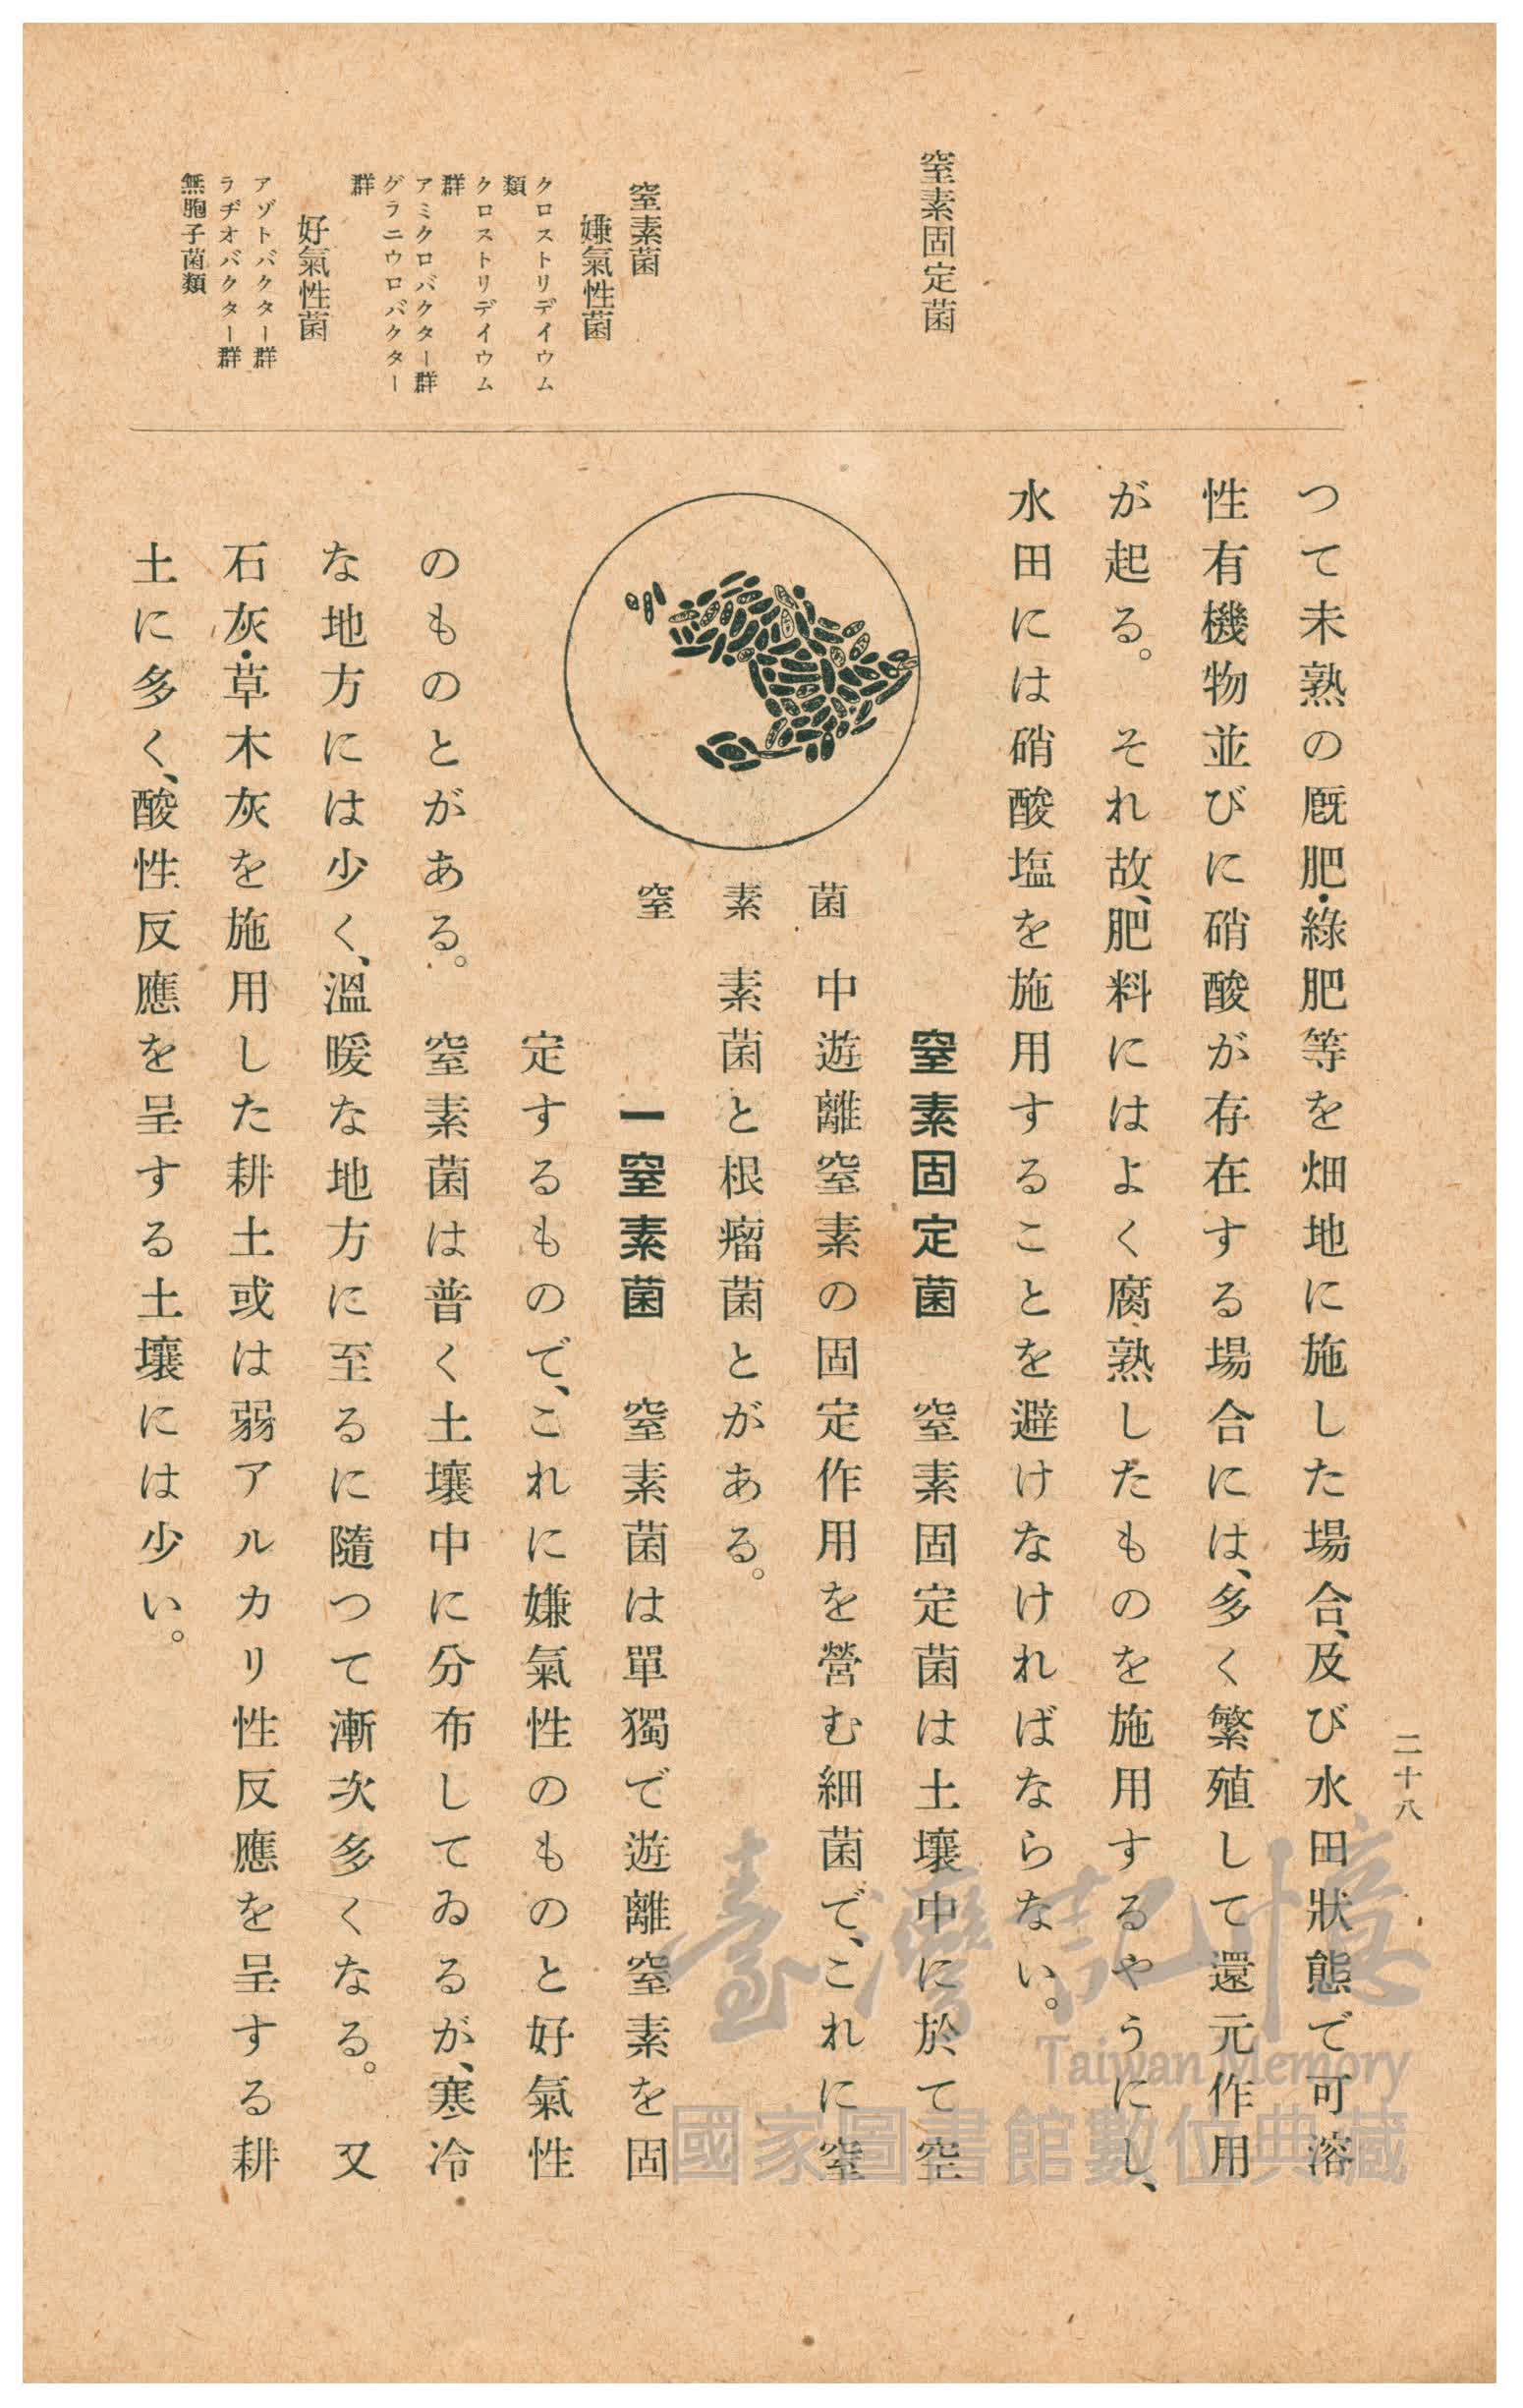 二十八
つて未熟の厩肥・綠肥等を畑地に施した場合、及び水田狀態で可溶
性有機物並びに硝酸が存在する場合には、多く繁殖して還元作用
が起る。それ故、肥料にはよく腐熟したものを施用するやうにし、
水田には硝酸塩を施用することを避けなければならない。
窒素固定菌
窒素固定菌 窒素固定菌は土壤中に於て空
中遊離窒素の固定作用を營む細菌で、これに窒
素菌と根瘤菌とがある。
窒素菌
窒素菌
一窒素菌 窒素菌は單獨で遊離窒素を固
嫌氣性菌
定するもので、これに嫌氣性のものと好氣性
クロストリデイウム
類
クロストリデイウム
群
アミクロバクター群
グラニウロバクター
群
のものとがある。窒素菌は普く土壤中に分布してゐるが、寒冷
好氣性菌
な地方には少く、溫暖な地方に至るに隨つて漸次多くなる。又
アゾトバクター群
ラヂオバクター群
無胞子菌類
石灰・草木灰を施用した耕土或は弱アルカリ性反應を呈する耕
土に多く、酸性反應を呈する土壤には少い。
臺灣記憶
Taiwan Memory
國家圖書館數位典藏